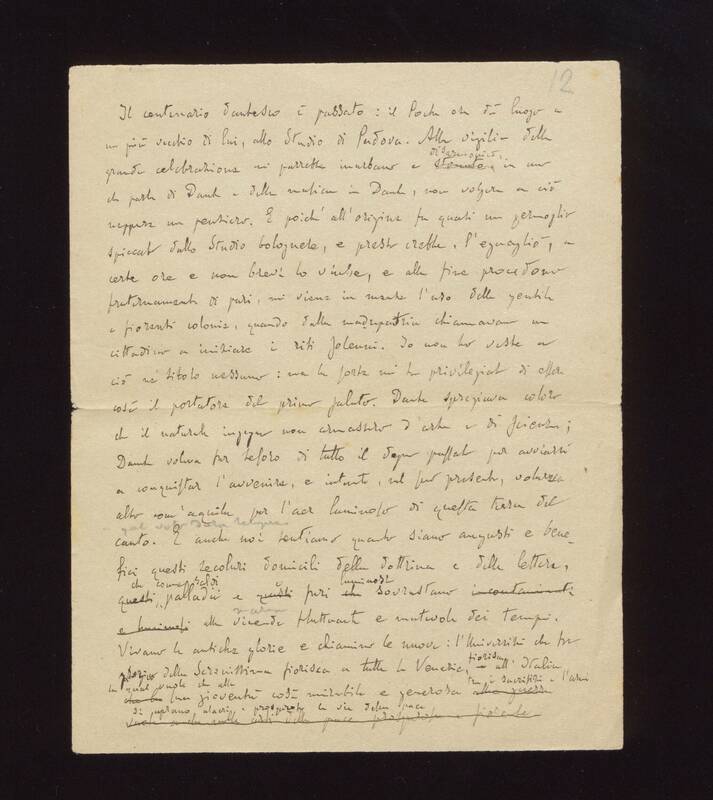 12
Il centenario dantesco è passato: il Poeta ora dà luogo a
un più vecchio di lui, allo Studio di Padova. Alla vigilia della
grande celebrazione mi parrebbe inurbano e
disarmonico,
stonato, in uno
che parla di Dante e della musica in Dante, non volgere a ciò
neppure un pensiero. E poich'all'origine fu quasi un germoglio
spiccato dallo Studio bolognese, e presto crebbe, l'eguagliò, a
certe ore e non brevi lo vinse, e alla fine procedono
fraternamente di pari, mi viene in mente l'uso delle gentili
e fiorenti colonie, quando dalla madrepatria chiamavan un
cittadino a iniziare i riti solenni. Io non ho veste a
ciò né titolo nessuno: ma la sorte mi ha privilegiato di esser
così il portatore del primo saluto. Dante spregiava coloro
che il naturale ingegno non armassero d'arte e di scienza;
Dante voleva far tesoro di tutto il degno passato per avviarsi
a conquistar l'avvenire, e intanto, nel suo presente, volava
alto com'aquila per l'aer luminoso di questa terra del
canto. E anche noi sentiamo quanto siano augusti e bene-
fici questi secolari domicili della dottrina e delle lettere,
che come saldi
questi palladii e questi fari
luminosi
che sovrastano incontaminati
e luminosi alla vicenda fluttuante e mutevole dei tempi.
Vivano le antiche glorie e chiamino le nuove: l'Università che fu
presidio della Serenissima fiorisca a tutte le Venezie,
fiorisca
all'Italia
la quale vuole che alla
sua gioventù così mirabile e generosa
tra i sacrifizi e l'armi
alla guerra
si aprano, alacri e prosperose le vie della pace
vuole anche nelle arti della pace prosperosa e fiorente